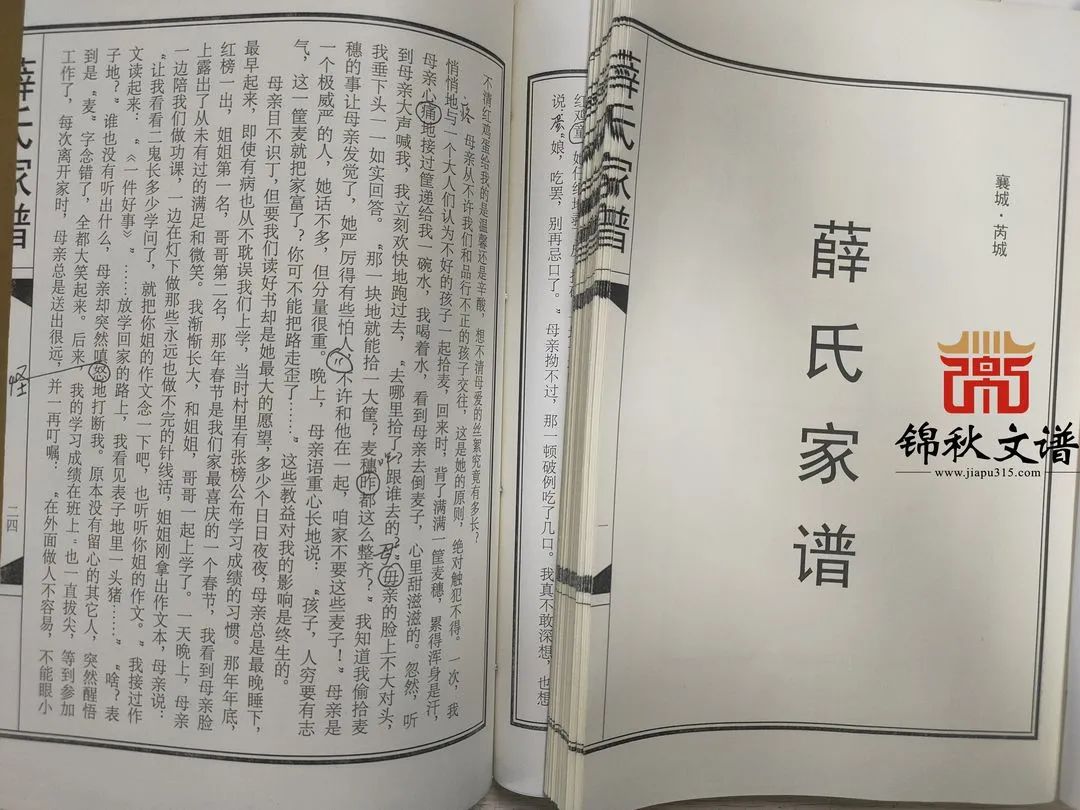 襄城·芮城
薛氏家谱
锦秋文谱
www.jiapu315.com
薛氏家谱
一
红鸡童
说："娘，吃罢，别再忌口了。"母亲拗不过，那一顿破例吃了几口。我真不敢深想，也想
不清红鸡蛋给我的是温馨还是辛酸，想不清母爱的丝絮究竟有多长？
母亲从不许我们和品行不正的孩子交往，这是她的原则，绝对触犯不得。一次，我
悄悄地与一个大人们认为不好的孩子一起拾麦，回来时，背了满满一筐麦穗，累得浑身是汗，
疼
母亲心痛地接过筐递给我一碗水，我喝着水，看到母亲去倒麦子，心里甜滋滋的。忽然，听
到母亲大声喊我，我立刻欢快地跑过去，"去哪里拾了？跟谁去的？"毋亲的脸上不大对头，
母
我垂下头一一如实回答。"那一块地就能拾一大筐？麦穗昨都这么整齐？"我知道我偷拾麦
穗的事让母亲发觉了，她严厉得有些怕人，"不许和他在一起，咱家不要这些麦子！"母亲是
一个极威严的人，她话不多，但分量很重。晚上，母亲语重心长地说："孩子，人穷要有志
气，这一筐麦就把家富了？你可不能把路走歪了……"这些教益对我的影响是终生的。
母亲目不识丁，但要我们读好书却是她最大的愿望，多少个日日夜夜，母亲总是最晚睡下，
最早起来，即使有病也从不耽误我们上学，当时村里有张榜公布学习成绩的习惯。那年年底，
红榜一出，姐姐第一名，哥哥第二名，那年春节是我们家最喜庆的一个春节，我看到母亲脸
上露出了从未有过的满足和微笑。我渐渐长大，和姐姐，哥哥一起上学了。一天晚上，母亲
一边陪我们做功课，一边在灯下做那些永远也做不完的针线活，姐姐刚拿出作文本，母亲说：
"让我看看二鬼长多少学问了，就把你姐的作文念一下吧，也听听你姐的作文。"我接过作
文读起来："《一件好事》"……放学回家的路上，我看见表子地里一头猪……""啥？表
子地？"谁也没有听出什么，母亲却突然嗔怒地打断我。原本没有留心的其它人，突然醒悟
怪
到是"麦"字念错了，全都大笑起来。后来，我的学习成绩在班上"也一直拔尖，等到参加
工作了，每次离开家时，母亲总是送出很远，并一再叮嘱："在外面做人不容易，不能眼小
薛氏家谱
二四